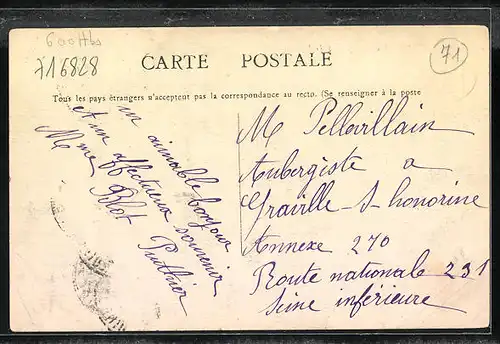 600Hbs
716828
CARTE POSTALE
71
Tous les pays étrangers n'acceptent pas la correspondance au recto. (Se renseigner à la poste
un aimable bonjour
et un affectueux souvenir
Mme Blot
M Pellerllain
Aubergiste a
Graville-S honorine
Annexe 270
Route nationale 231
Seine inférieure